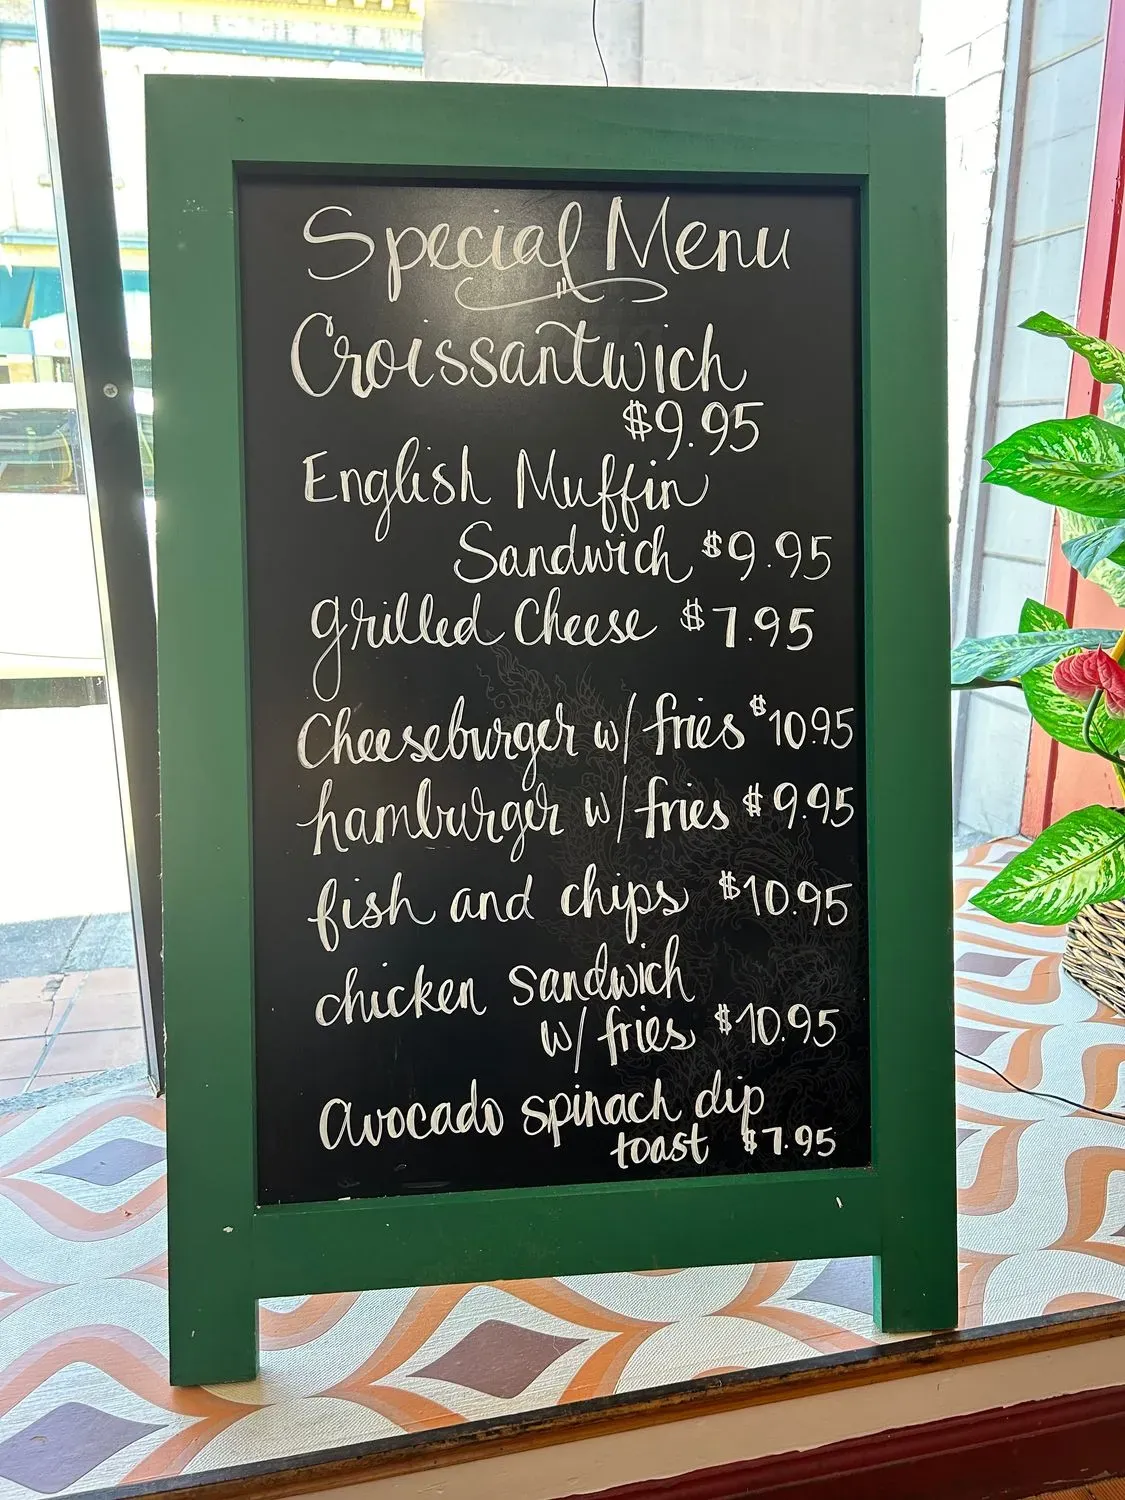 Special Menu
Croissantwich
$9.95
English Muffin
Sandwich $9.95
grilled cheese $7.95
Cheeseburger w/ fries $10.95
hamburger w/ fries $9.95
fish and chips $10.95
chicken sandwich
w/ fries $10.95
avocado spinach dip
toast $7.95